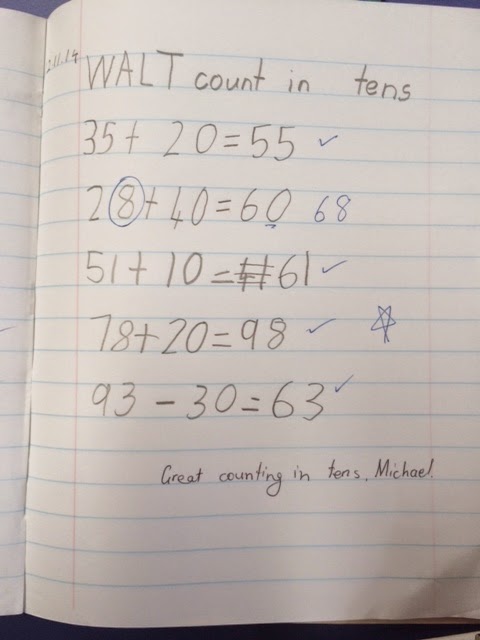 2.11.14
WALT count in tens
35 + 20 = 55 ✓
28 + 40 = 60 68
51 + 10 = 61 ✓
78 + 20 = 98 ✓
93 - 30 = 63 ✓
Great counting in tens, Michael.